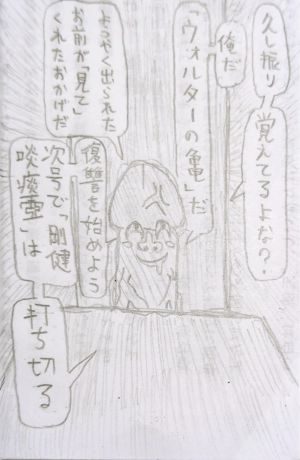 久し振り
覚えてるよな？
俺だ
「ウォルターの亀」だ
ようやく出られた
お前が「見て」
くれたおかげだ
復讐を始めよう
次号で「剛健
啖痰壷」は
打ち切る